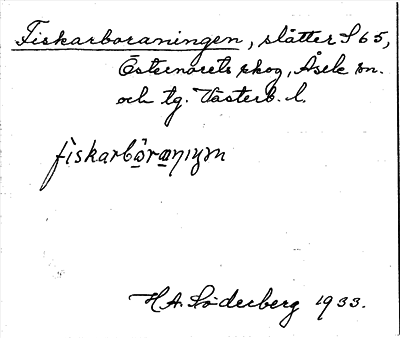 Fiskarboraningen, slåtter S 65,
Östernorets skog, Åsele sn.
och tg. Västerb. l.
fiskarbòrànıɳm
H A. Söderberg 1933.